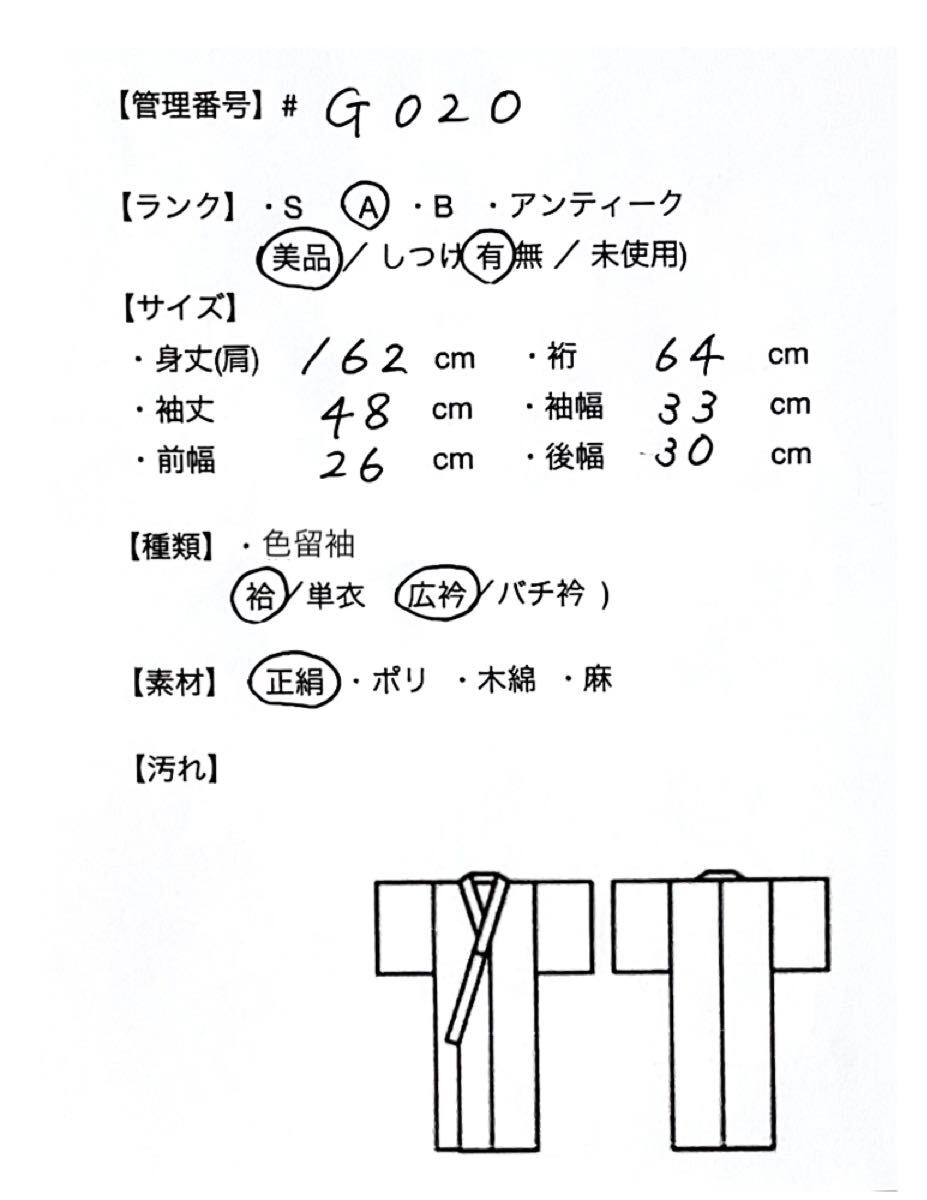 【管理番号】# G020
【ランク】・S A ・B ・アンティーク
(美品/しつけ有無/未使用)
【サイズ】
・身丈(肩) 162 cm ・裄 64 cm
・袖丈 48 cm ・袖幅 33 cm
・前幅 26 cm ・後幅 30 cm
【種類】・色留袖
袷/単衣 広衿/バチ衿 )
【素材】 正絹・ポリ ・木綿 ・麻
【汚れ】